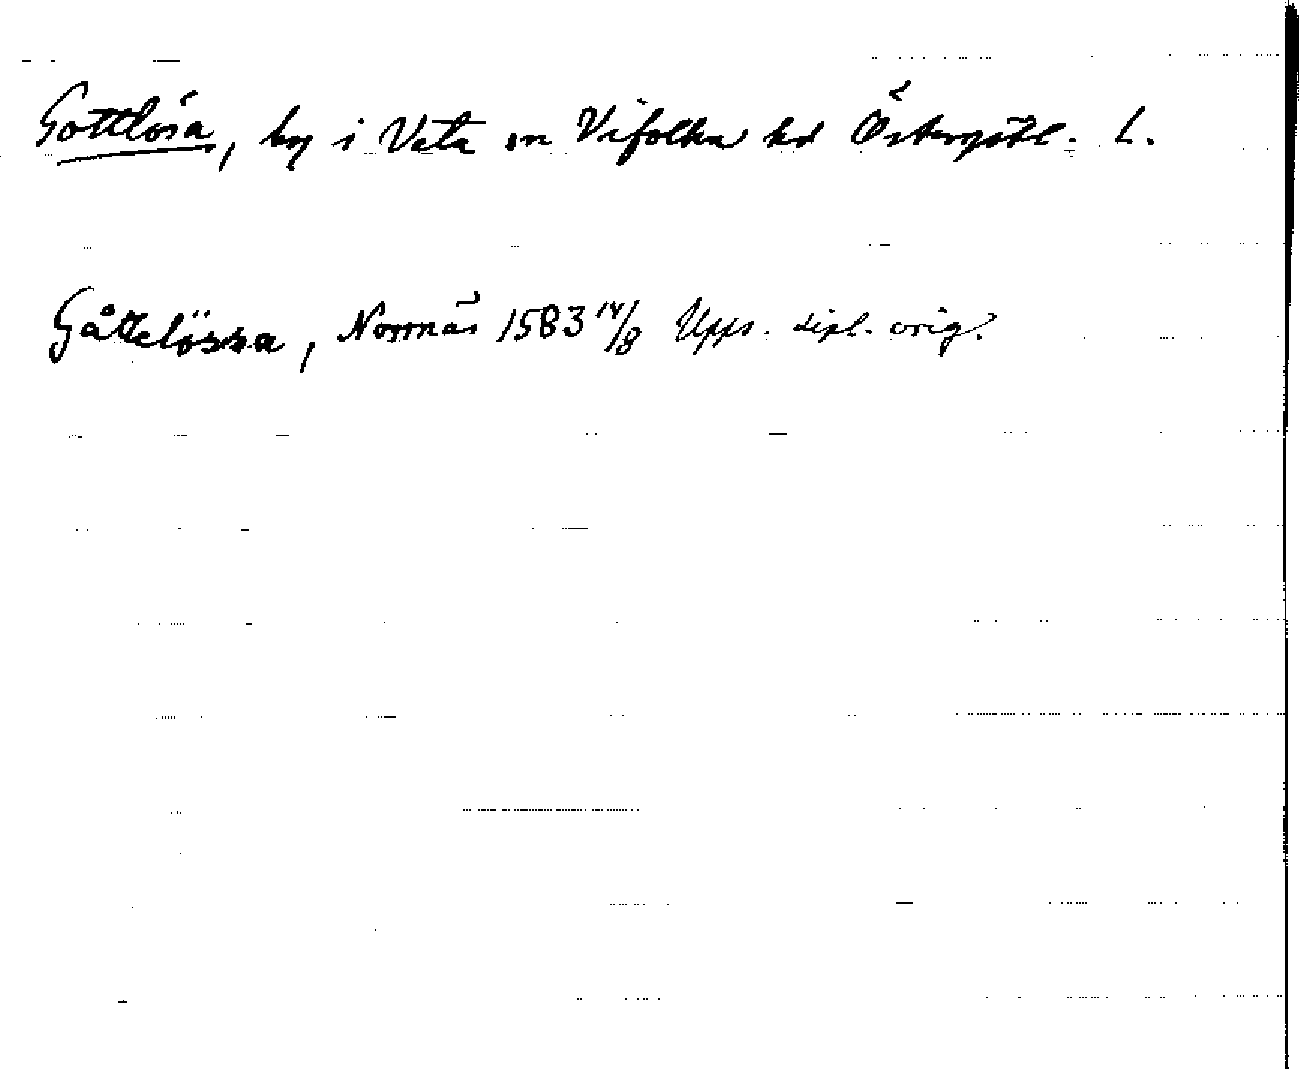 Gottlösa, by i Veta sn Vifolka hd Östergötl. L.
Gåttelössa, Norrnäs 1583 14/8 Upps. dipl. orig.